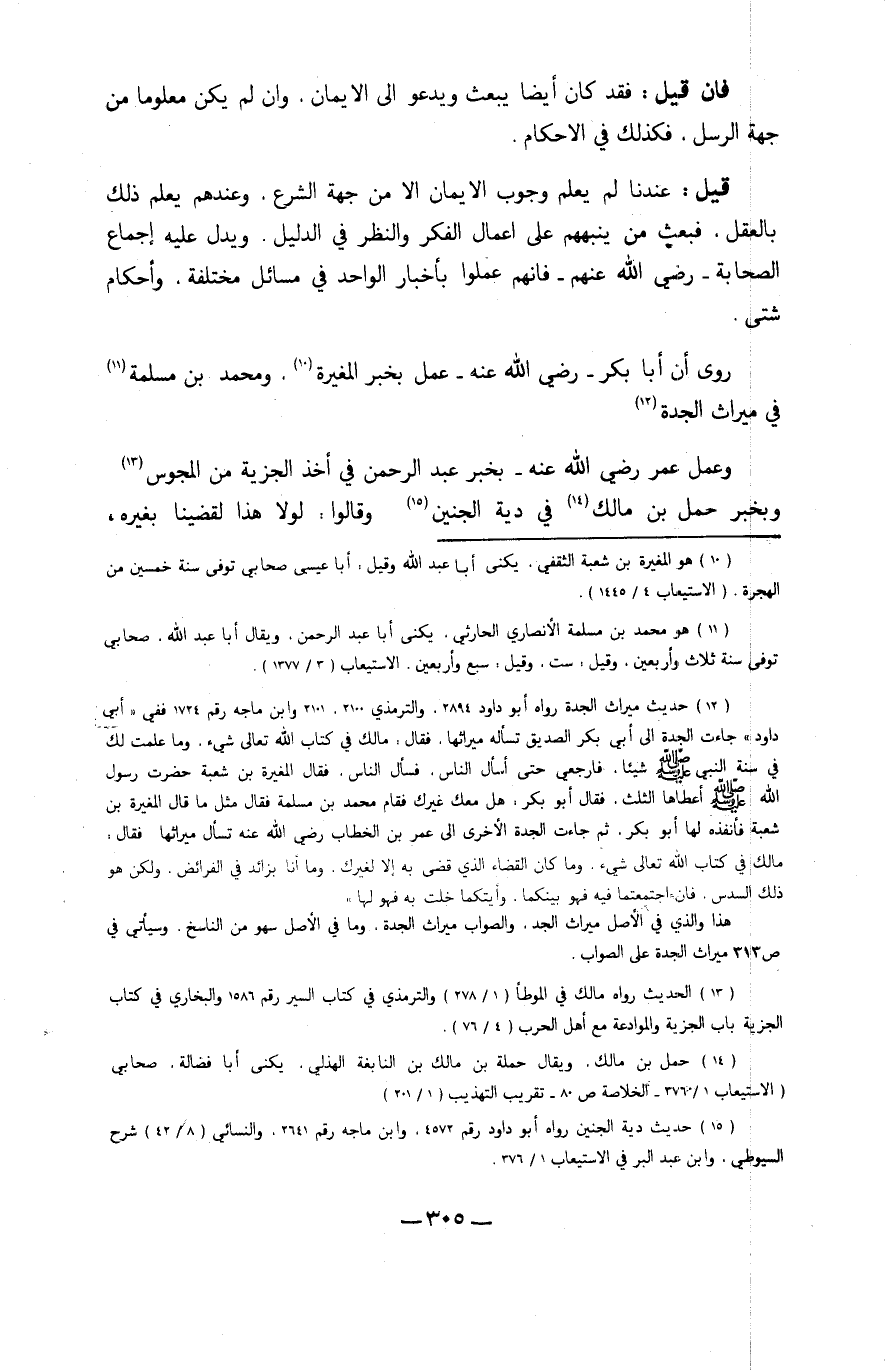 فان قيل : فقد كان أيضا يبعث ويدعو الى الايمان ، وان لم يكن معلوما من
جهة الرسل ، فكذلك في الاحكام .
قيل : عندنا لم يعلم وجوب الايمان الا من جهة الشرع ، وعندهم يعلم ذلك
بالعقل ، فبعث من ينبههم على اعمال الفكر والنظر في الدليل . ويدل عليه إجماع
الصحابة ـ رضي الله عنهم ـ فانهم عملوا بأخبار الواحد في مسائل مختلفة ، وأحكام
شتى .
روى أن أبا بكر ـ رضي الله عنه ـ عمل بخبر المغيرة (١٠) ، ومحمد بن مسلمة (١١)
في ميراث الجدة (١٢)
وعمل عمر رضي الله عنه ـ بخبر عبد الرحمن في أخذ الجزية من المجوس (١٣)
وبخبر حمل بن مالك (١٤) في دية الجنين (١٥) وقالوا : لولا هذا لقضينا بغيره ،
( ١٠ ) هو المغيرة بن شعبة الثقفي . يكنى أبا عبد الله وقيل : أبا عيسى صحابي توفى سنة خمسين من
الهجرة . ( الاستيعاب ٤ / ١٤٤٥ ) .
( ١١ ) هو محمد بن مسلمة الأنصاري الحارثي . يكنى أبا عبد الرحمن . ويقال أبا عبد الله . صحابي
توفى سنة ثلاث وأربعين . وقيل : ست . وقيل : سبع وأربعين . الاستيعاب ( ٣ / ١٣٧٧ ) .
( ١٢ ) حديث ميراث الجدة رواه أبو داود ٢٨٩٤ . والترمذي ٢١٠٠ . ٢١٠١ وابن ماجه رقم ١٧٢٤ ففي « أبي
داود » جاءت الجدة الى أبي بكر الصديق تسأله ميراثها . فقال : مالك في كتاب الله تعالى شيء . وما علمت لك
في سنة النبي ﷺ شيئا . فارجعي حتى أسأل الناس . فسأل الناس . فقال المغيرة بن شعبة حضرت رسول
الله ﷺ أعطاها الثلث . فقال أبو بكر : هل معك غيرك فقام محمد بن مسلمة فقال مثل ما قال المغيرة بن
شعبة فأنفذه لها أبو بكر . ثم جاءت الجدة الأخرى الى عمر بن الخطاب رضي الله عنه تسأل ميراثها فقال :
مالك في كتاب الله تعالى شيء . وما كان القضاء الذي قضى به إلا لغيرك . وما أنا بزائد في الفرائض . ولكن هو
ذلك السدس . فان اجتمعتما فيه فهو بينكما . وأيتكما خلت به فهو لها »
هذا والذي في الأصل ميراث الجد . والصواب ميراث الجدة . وما في الأصل سهو من الناسخ . وسيأتي في
ص٣١٣ ميراث الجدة على الصواب .
( ١٣ ) الحديث رواه مالك في الموطأ ( ١ / ٢٧٨ ) والترمذي في كتاب السير رقم ١٥٨٦ والبخاري في كتاب
الجزية باب الجزية والموادعة مع أهل الحرب ( ٤ / ٧٦ ) .
( ١٤ ) حمل بن مالك . ويقال حملة بن مالك بن النابغة الهذلي . يكنى أبا فضالة . صحابي
( الاستيعاب ١ / ٣٧٦ ـ الخلاصة ص ٨٠ ـ تقريب التهذيب ( ١ / ٢٠١ )
( ١٥ ) حديث دية الجنين رواه أبو داود رقم ٤٥٧٢ . وابن ماجه رقم ٢٦٤١ . والنسائي ( ٨ / ٤٢ ) شرح
السيوطي . وابن عبد البر في الاستيعاب ١ / ٣٧٦ .
ـ ٣٠٥ ـ